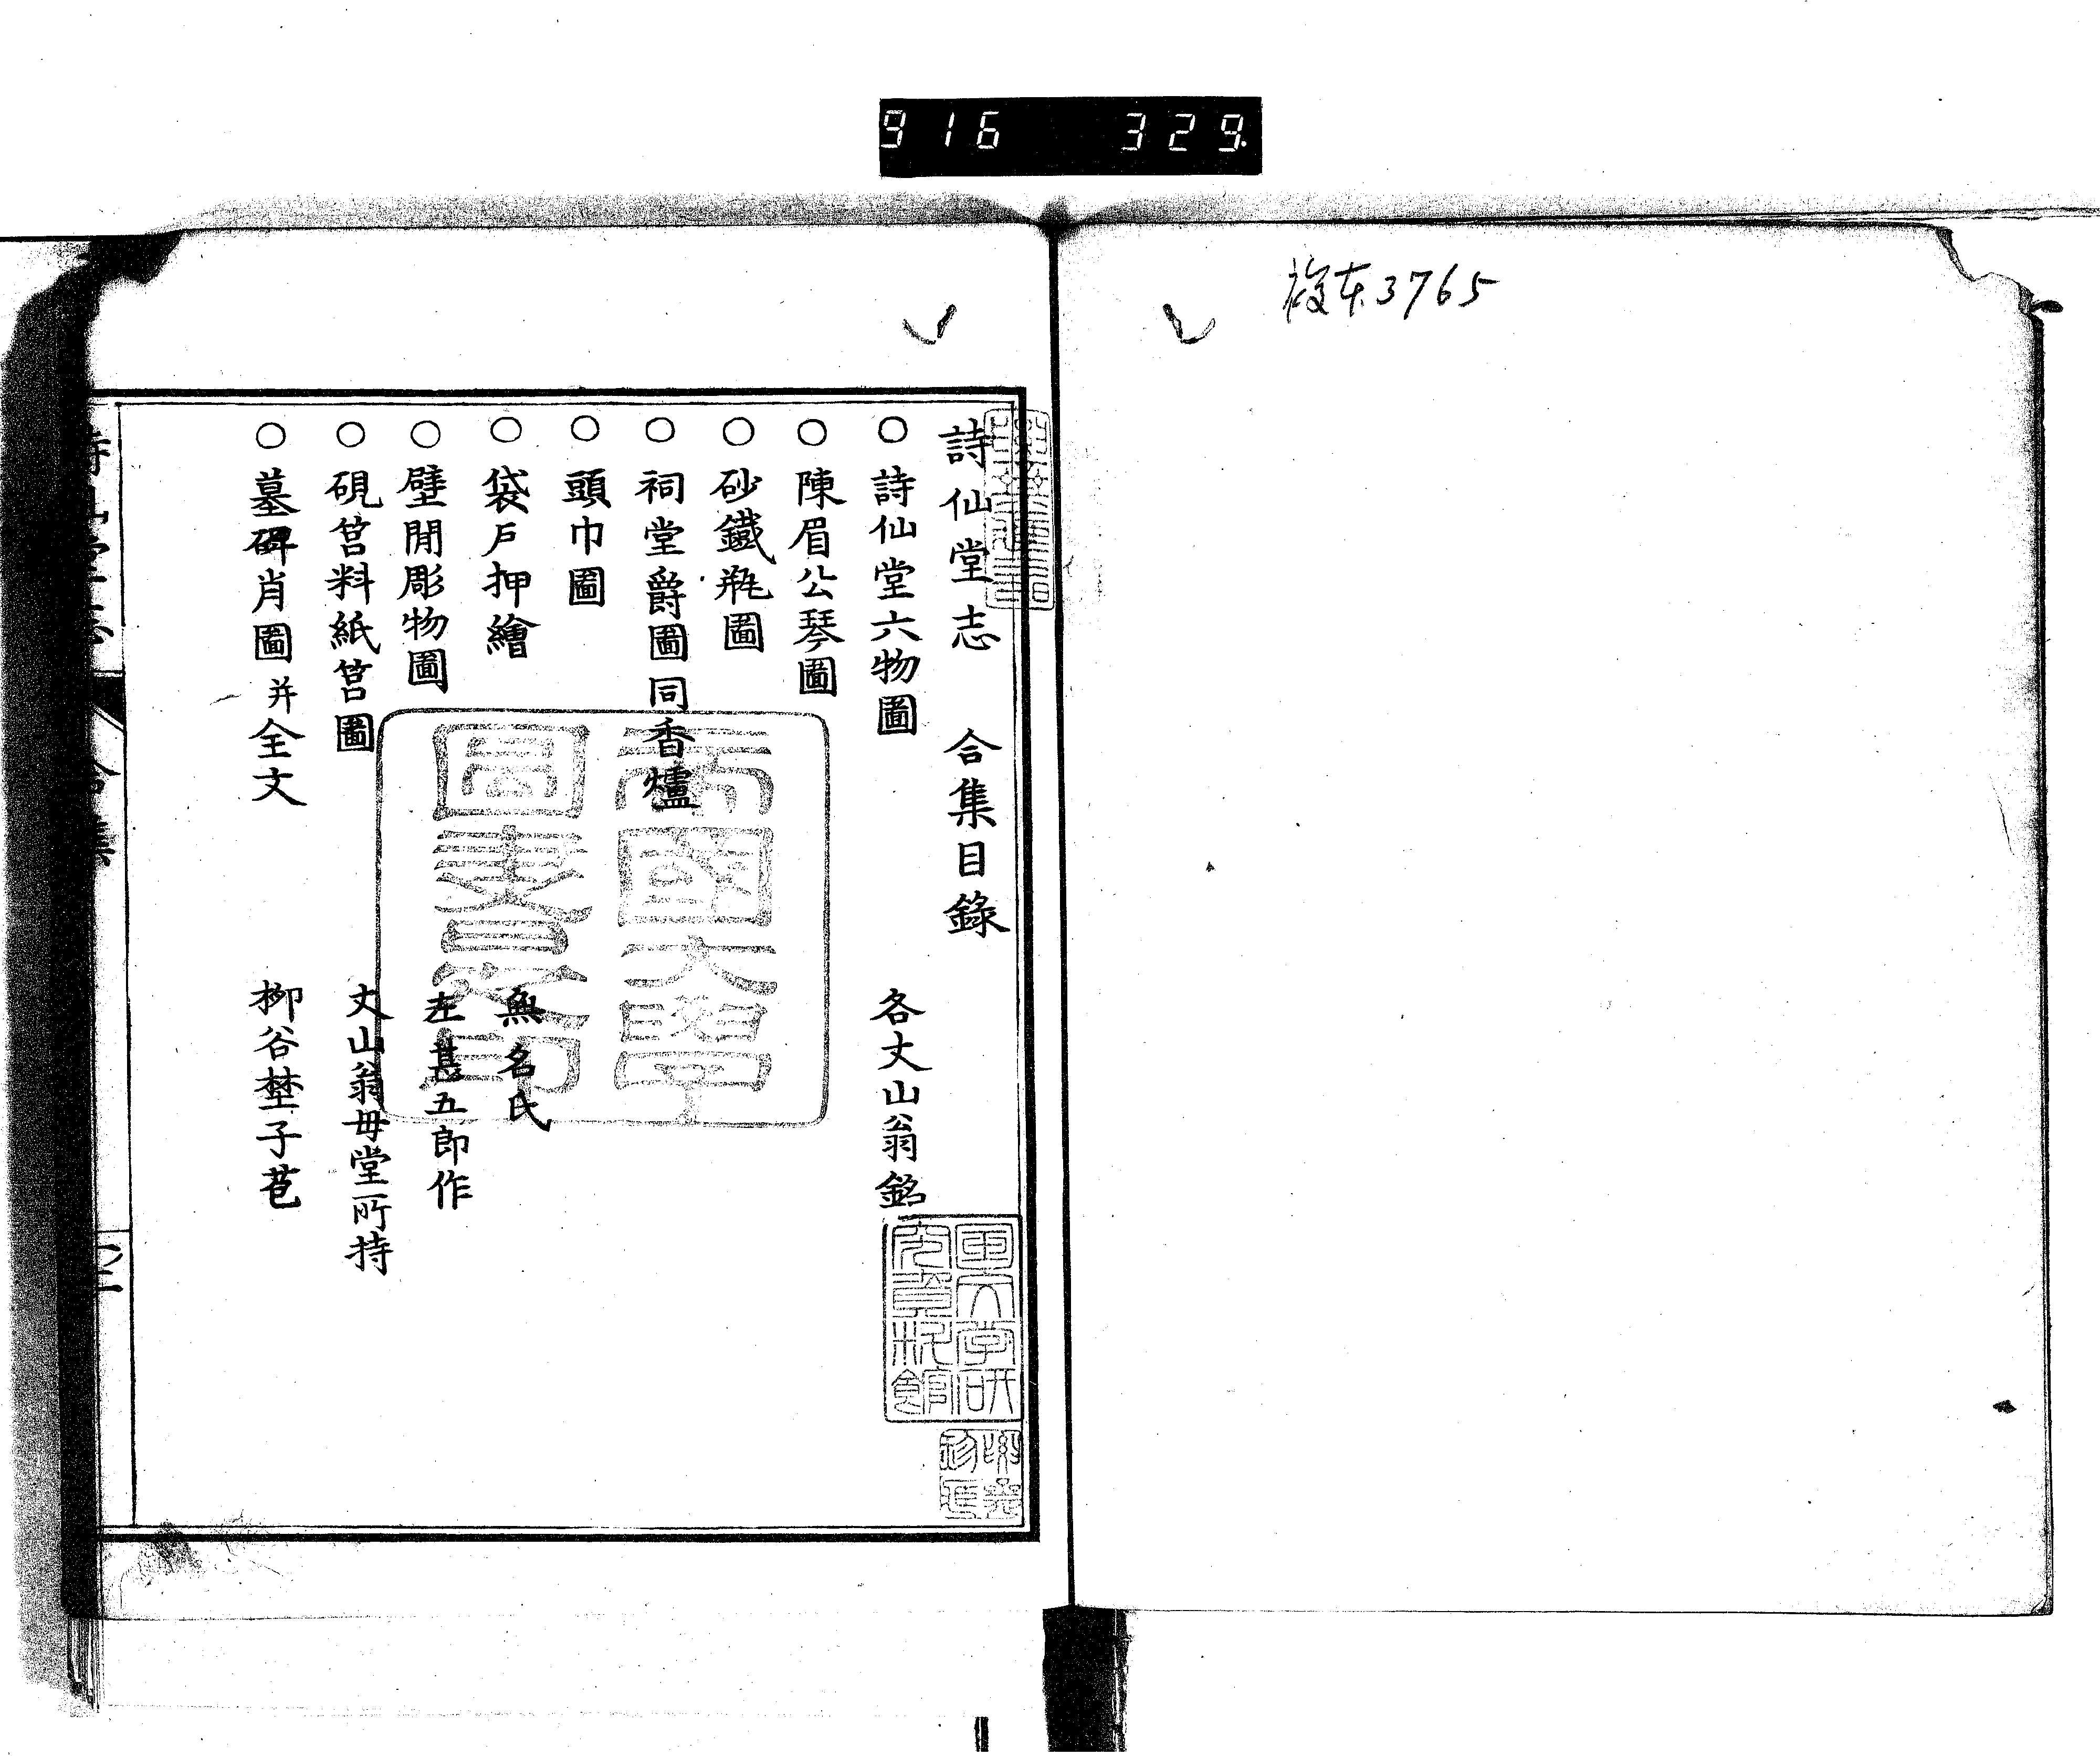 916 329.
複本3765
詩仙堂志 合集目錄
○詩仙堂六物圖 各丈山翁銘
○陳眉公琴圖
○砂鐵瓶圖
○祠堂爵圖同香爐
○頭巾圖
○袋戶押繪 無名氏
○壁間彫物圖 左甚五郎作
○硯筥料紙筥圖 丈山翁母堂所持
○墓碑肖圖并全文 柳谷埜子苞
帝國大學圖書之印
国文学研究資料館